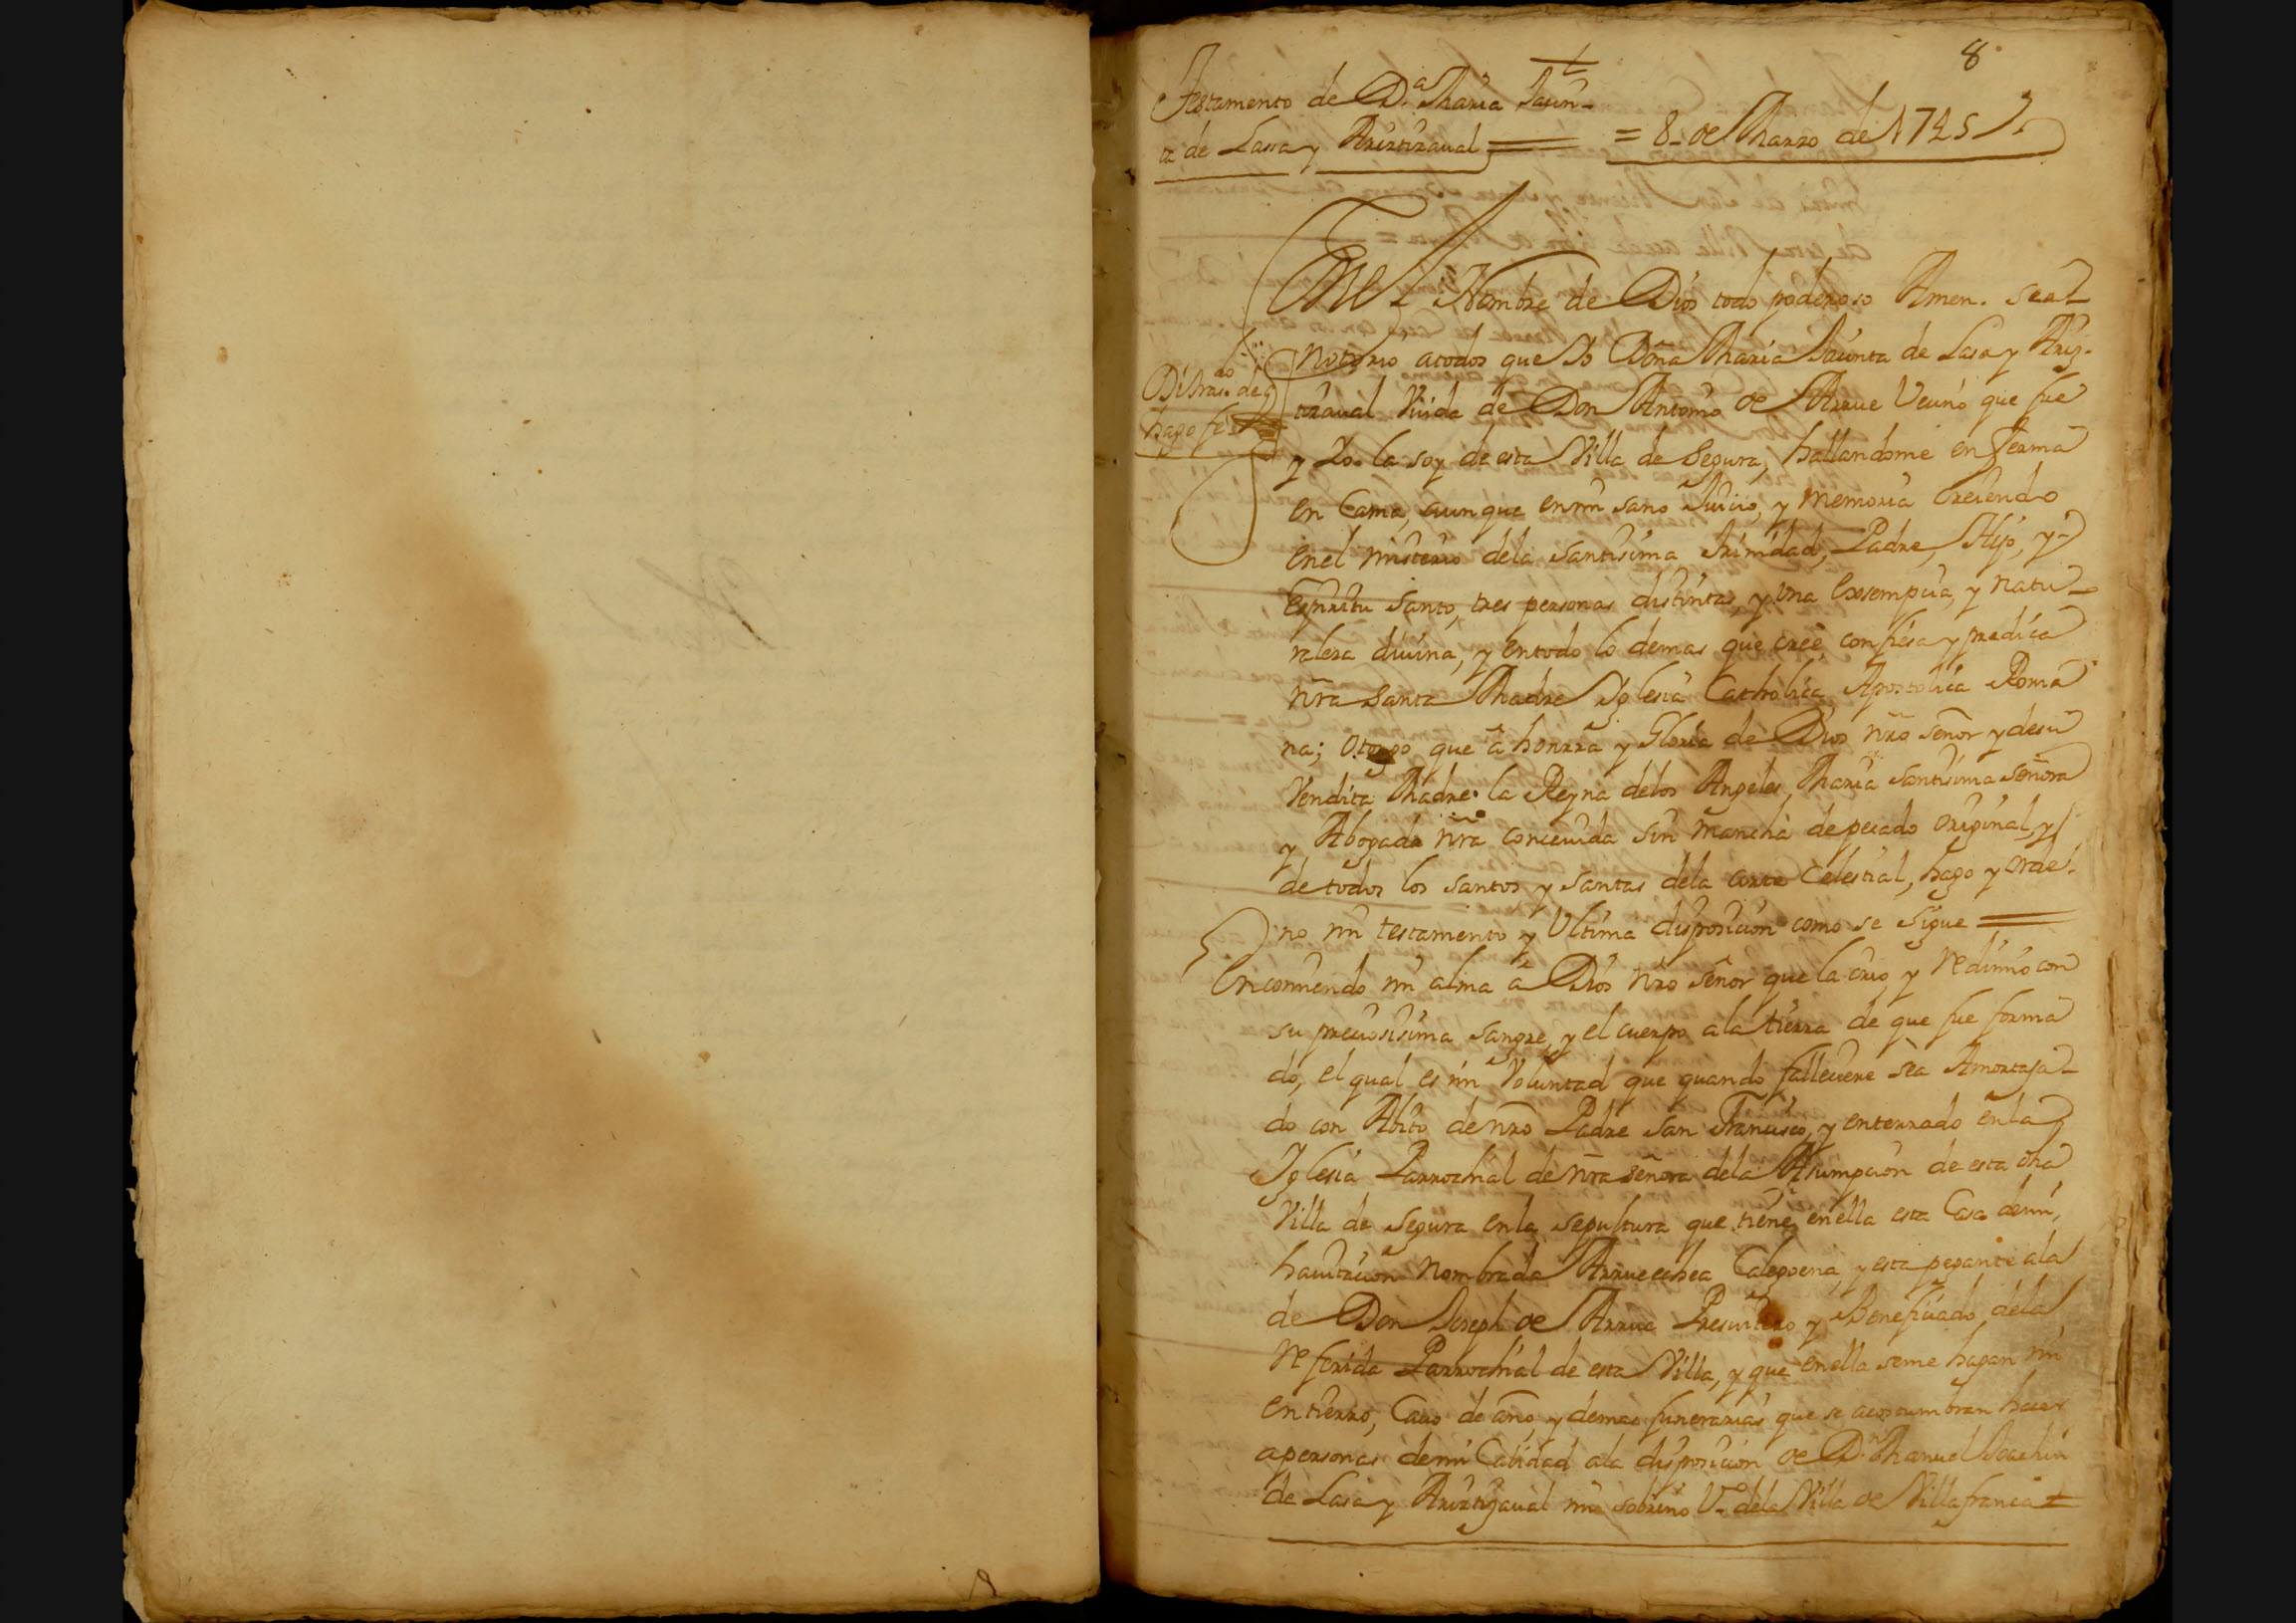 8
Testamento de D.ª Maria Jacin-
ta de Lasa y Ariztizaval = 8 de Marzo de 1745
En el Nombre de Dios todo poderoso Amen. sea
notorio atodos que Yo Doña Maria Jacinta de Lasa y Ariz-
tizaval Viuda de Don Antonio de Arrue Vecino que fue
hago fe
y Yo la soy de esta Villa de Segura, hallandome enferma
en Cama, aunque en mi sano Juicio, y memoria Creiendo
en el misterio dela Santisima Trinidad, Padre, Hijo, y
Espiritu Santo, tres personas distintas, y Una Essempcia, y natu-
raleza divina, y entodo lo demas que cree, confiesa y predica
nr̃a Santa Madre Yglesia Catholica Apostolica Roma
na; otorgo que â honrra y Gloria de Dios nr̃o Señor y desu
Vendita Madre la Reyna delos Angeles, Maria Santisima Señora
y Abogada nr̃a concevida sin mancha de pecado original, y
de todos los santos y santas dela corte Celestial, hago y orde-
no mi testamento y Ultima disposicion como se sigue
Encomiendo mi alma â Dios nr̃o señor que la crio y redimio con
su preciosisima sangre, y el cuerpo ala tierra de que fue forma
do, el qual es mi Voluntad que quando falleciere sea Amortaja-
do con Abito de nr̃o Padre San Francisco, y enterrado en la
Yglesia Parrochial de nr̃a señora dela Asumpcion de esta dh̃a
Villa de Segura enla sepultura que tiene en ella esta Casa de mi
havitacion nombrada Arrueechea Calegoena, y esta pegante ala
de Don Joseph de Arrue Presvitero y Beneficiado dela
referida Parrochial de esta Villa, y que en ella seme hagan mi
entierro, Cavo de año, y demas funerarias que se acostumbran hacer
apersonas de mi Calidad ala disposicion de D.ⁿ Manuel Joachin
de Lasa y Ariztizaval mi sobrino V.º dela Villa de Villafranca